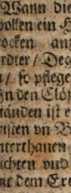 Wann die
wollen ein H
rocken an
rdter / Deg
/ so pflege
In den Clös
tänden ist e
nsten vn B
nterthanen
ichten vnd
it dem Exe